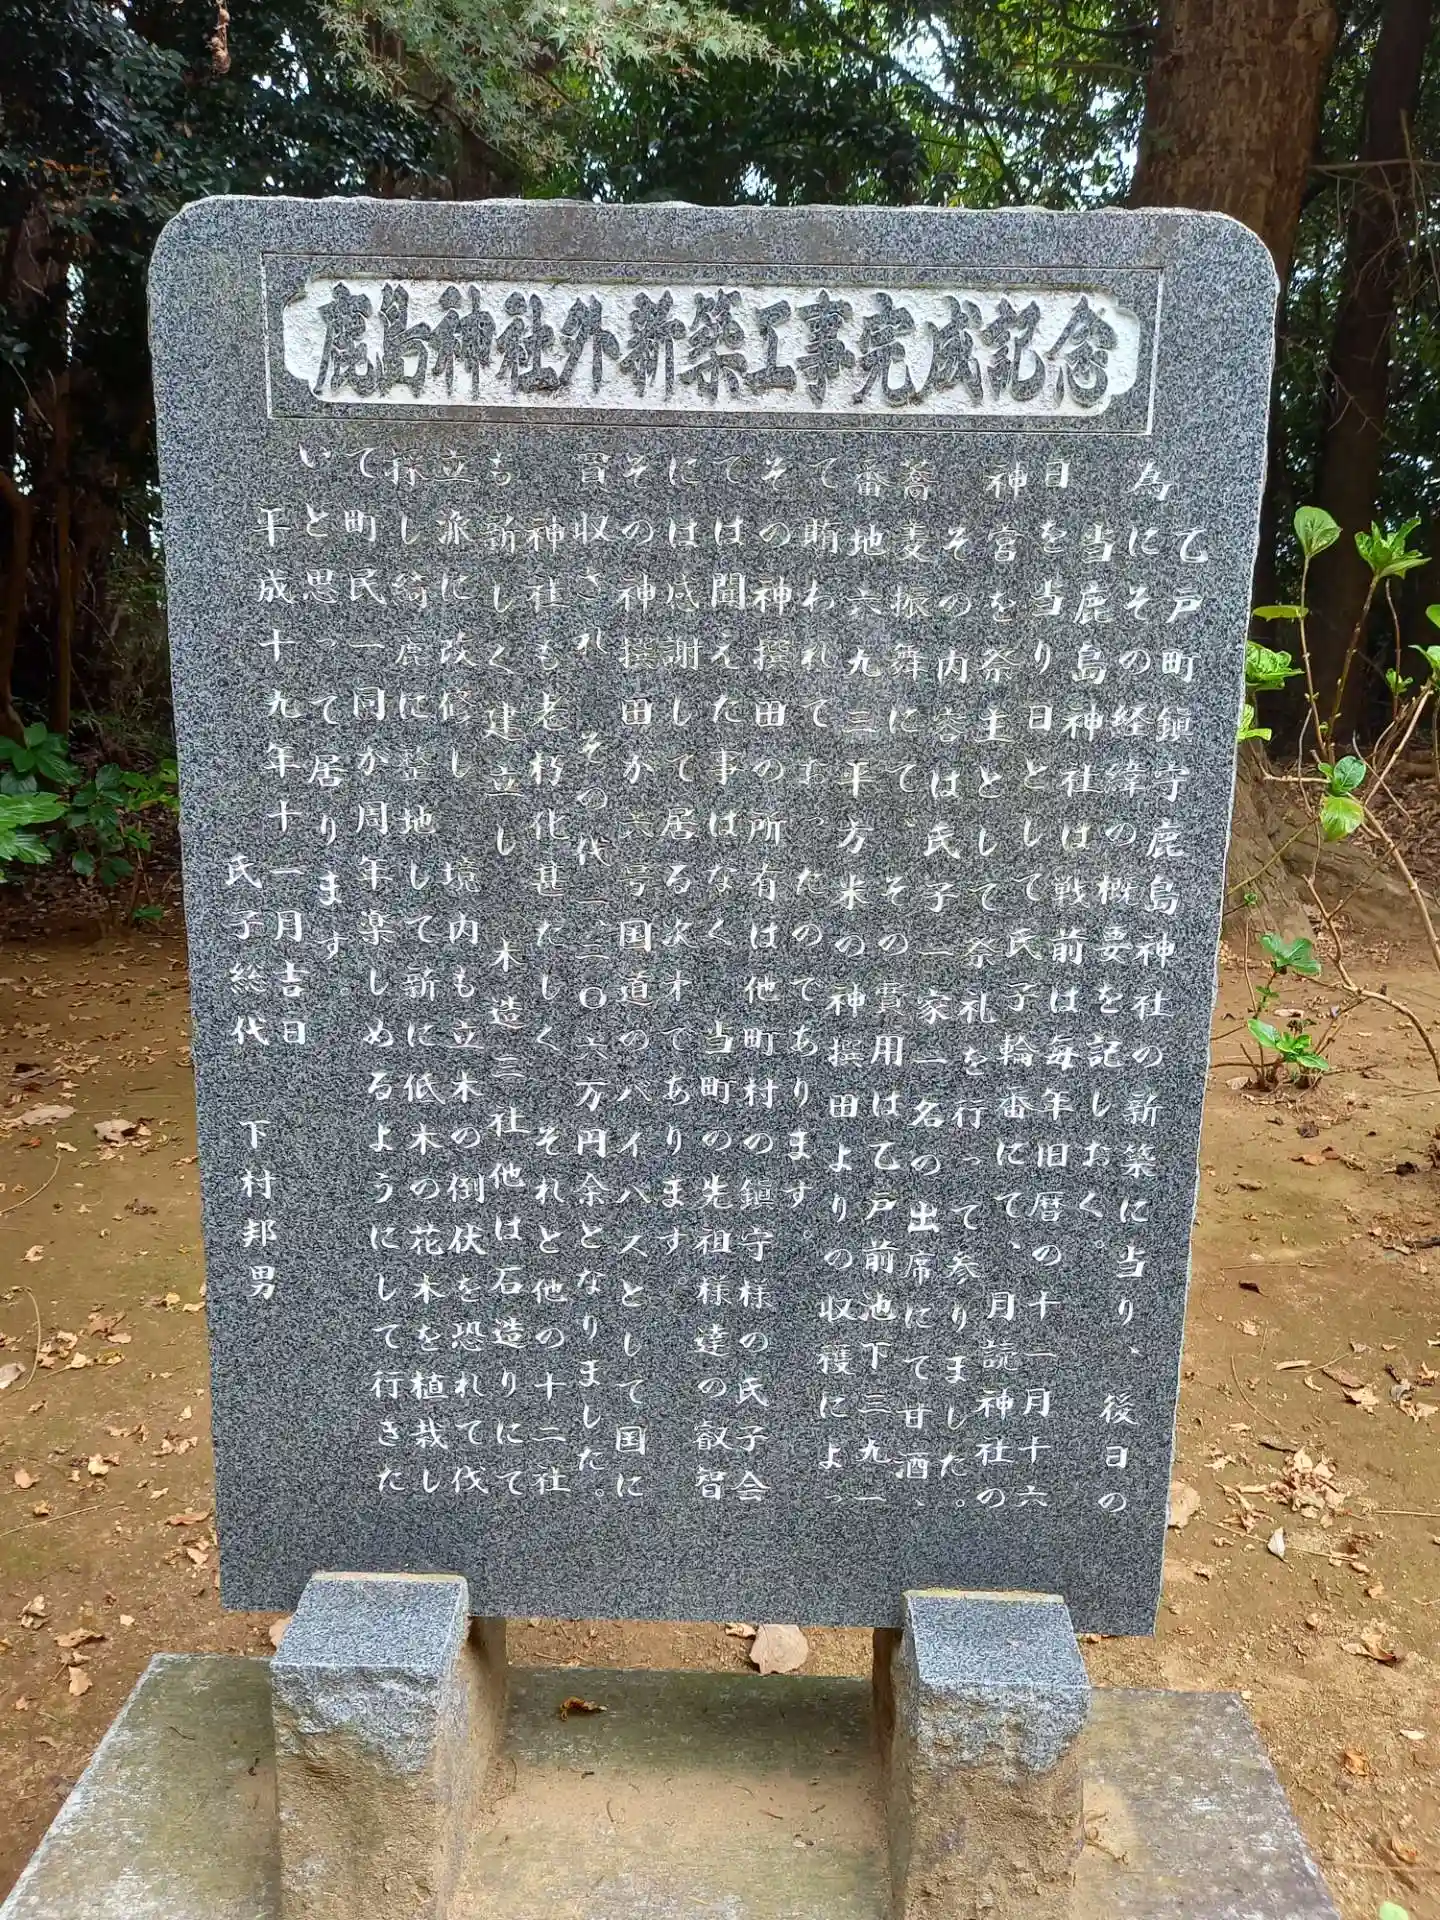 鹿島神社外新築工事完成記念
乙戸町鎮守鹿島神社の新築に当り、後日の
為にその経緯の概要を記しおく。
当鹿島神社は戦前は毎年旧暦の十一月十六
日を当り日として氏子輪番にて、月読神社の
神宮を祭主として祭礼を行って参りました。
その内容は氏子一家一名の出席にて甘酒、
蕎麦振舞にて、その費用は乙戸前池下三九一
番地六九三平方米の神撰田よりの収穫によっ
て賄われておったのであります。
その神撰田の所有は他町村の鎮守様の氏子会
では聞えた事はなく 当町の先祖様達の叡智
には感謝して居る次オであります。
その神撰田か六号国道のバイパスとして国に
買収され その代一、二〇六万円余となりました。
神社も老朽化甚たしく それと他の十二社
も新しく建立し 木造三社他は石造りにて
立派に改修し 境内も立木の倒伏を恐れて伐
採し綺鹿に整地して新に低木の花木を植栽し
て町民一同か周年楽しめるようにして行きた
いと思って居ります。
平成十九年十一月吉日
氏子総代 下村邦男